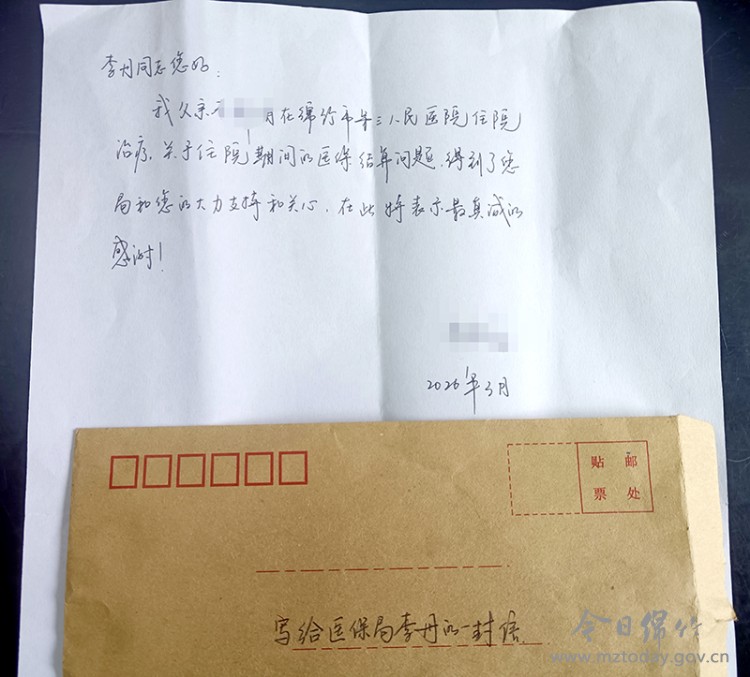 李丹同志您好：
我父亲 月在绵竹市第三人民医院住院
治疗，关于住院期间的医保结算问题，得到了您
局和您的大力支持和关心，在此特表示最真诚的
感谢！
2026年3月
贴 邮
票 处
写给医保局李丹的一封信
今日绵竹
www.mztoday.gov.cn